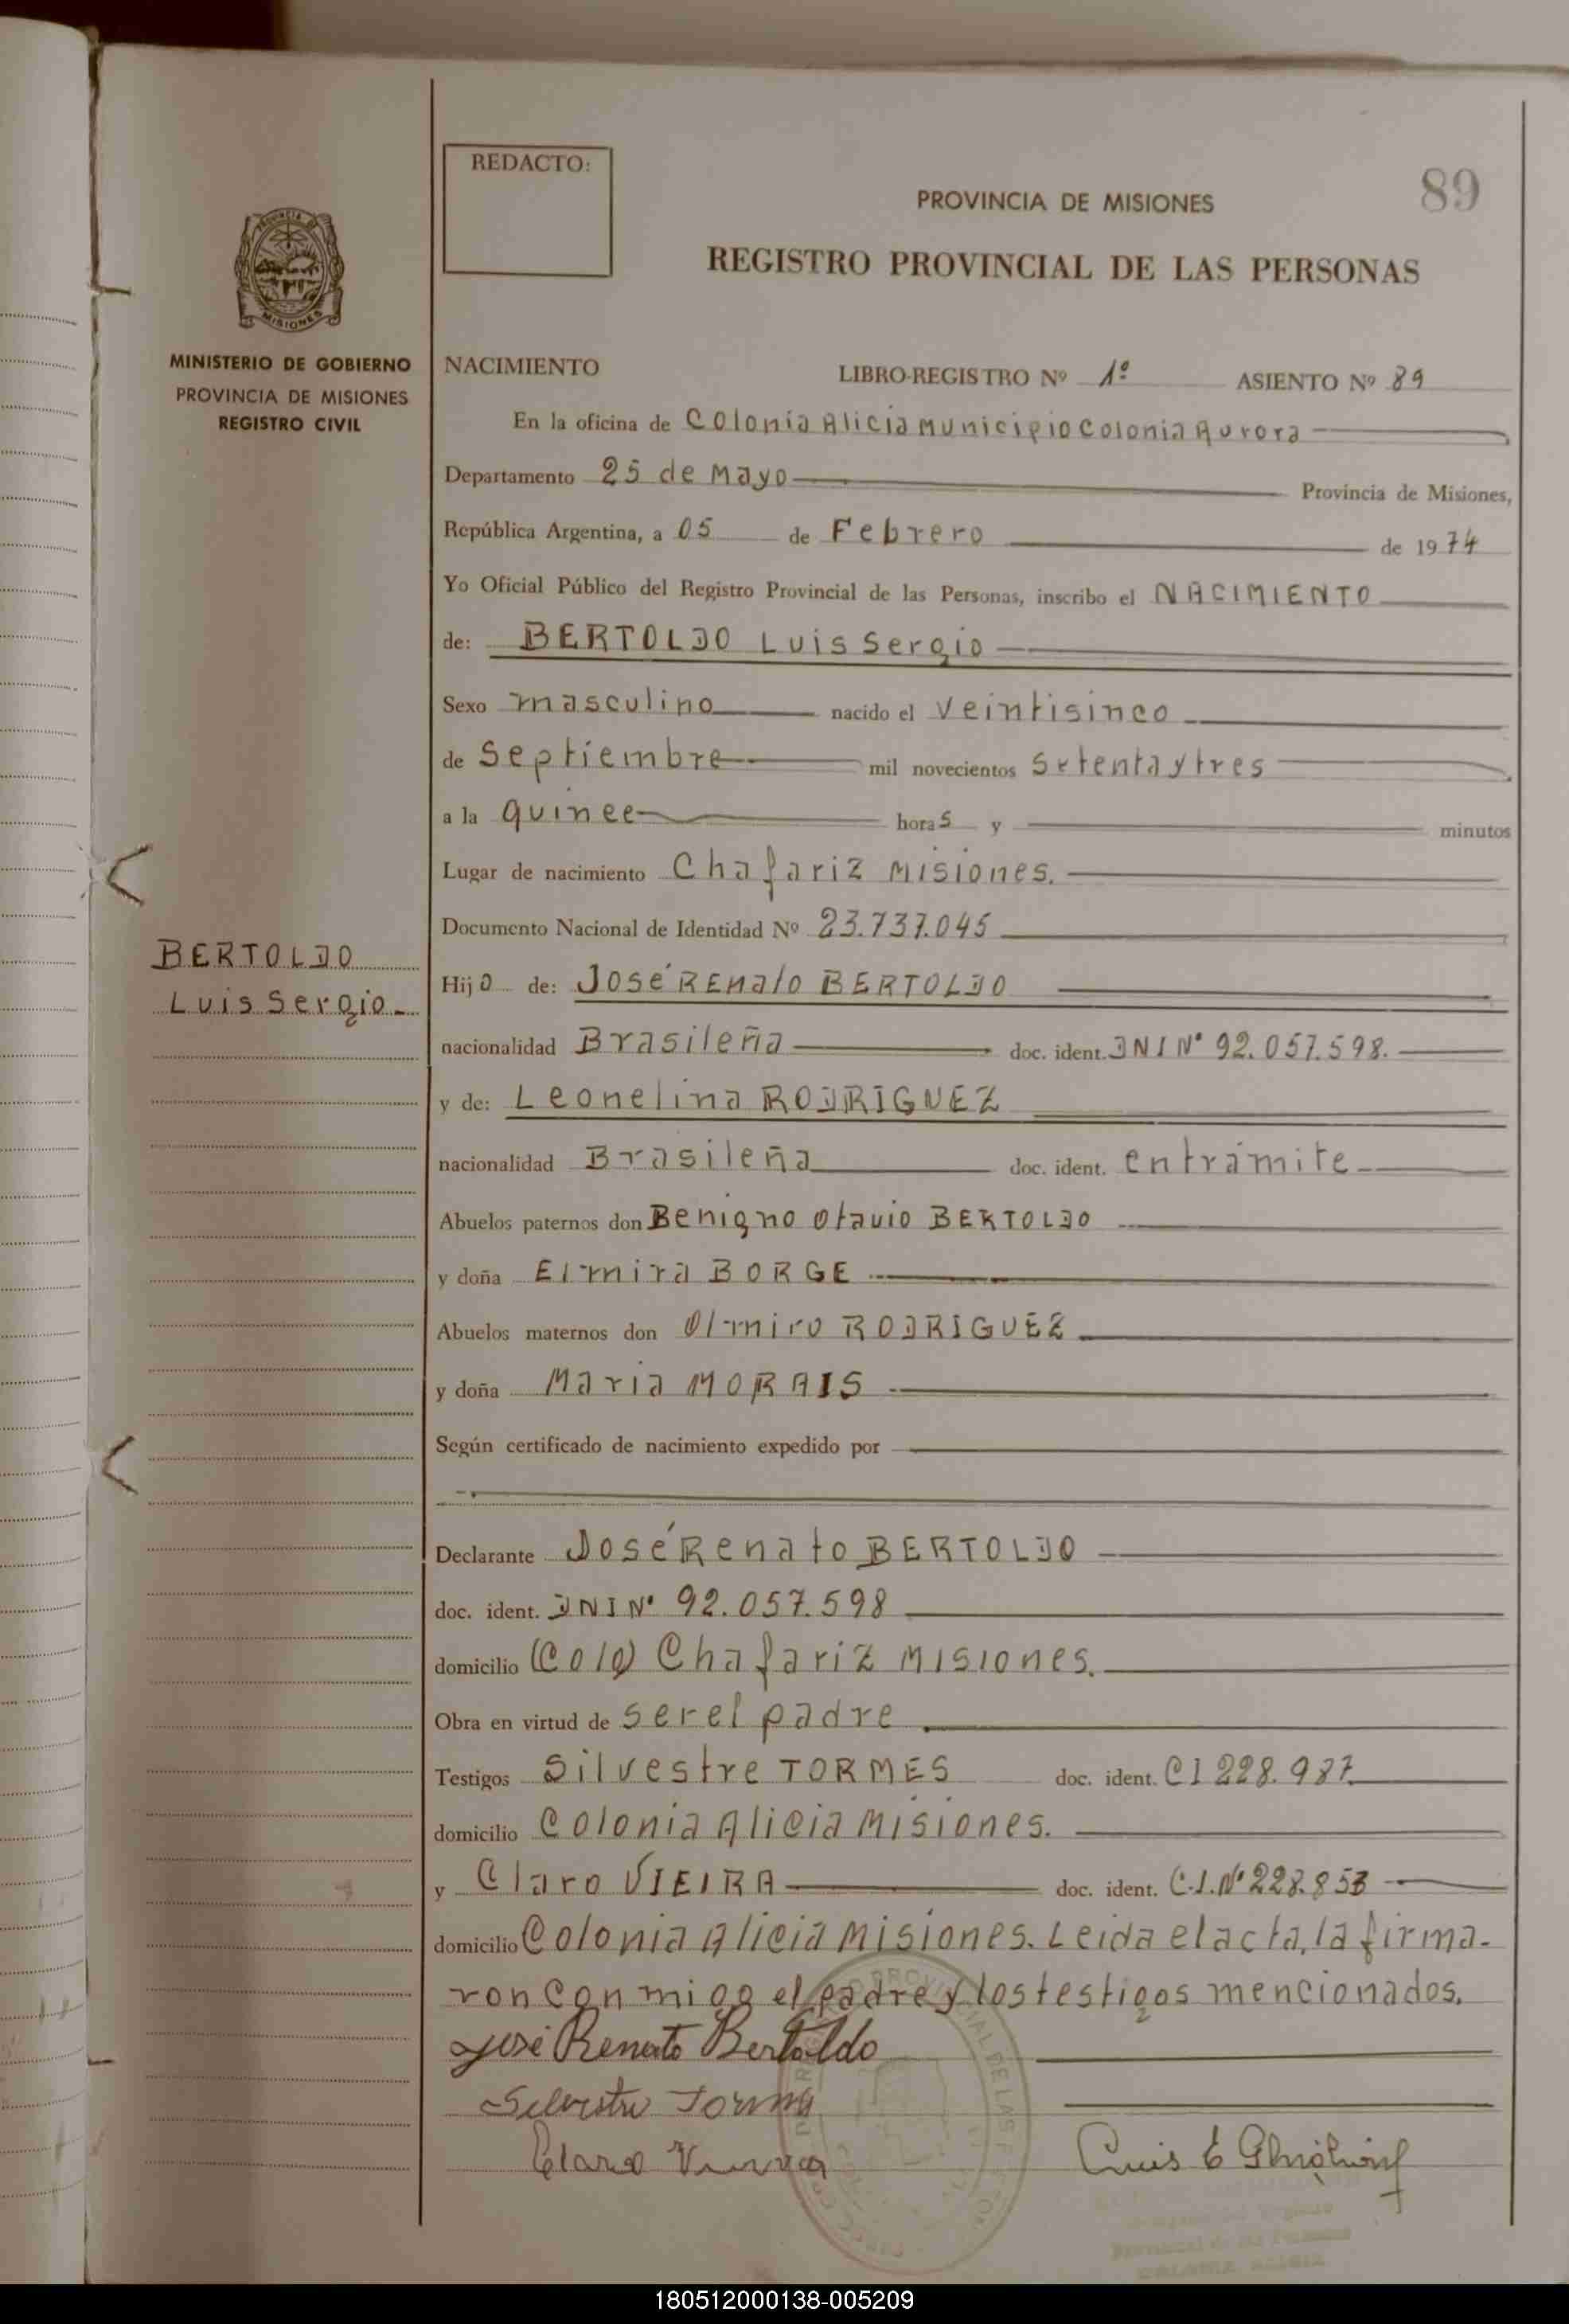 REDACTO:
PROVINCIA DE MISIONES
89
REGISTRO PROVINCIAL DE LAS PERSONAS
PROVINCIA DE
MISIONES
MINISTERIO DE GOBIERNO
PROVINCIA DE MISIONES
REGISTRO CIVIL
NACIMIENTO LIBRO-REGISTRO Nº 1º ASIENTO Nº 89
En la oficina de Colonia Alicia Municipio Colonia Aurora
Departamento 25 de Mayo Provincia de Misiones,
República Argentina, a 05 de Febrero de 1974
Yo Oficial Público del Registro Provincial de las Personas, inscribo el NACIMIENTO
de: BERTOLDO Luis Sergio
Sexo masculino nacido el veintisinco
de Septiembre mil novecientos setenta y tres
a la quince horas y minutos
Lugar de nacimiento Chafariz Misiones.
Documento Nacional de Identidad Nº 23.737.045
BERTOLDO
Luis Sergio
Hijo de: José Renato BERTOLDO
nacionalidad Brasileña doc. ident. DNI Nº 92.057.598.
y de: Leonelina RODRIGUEZ
nacionalidad Brasileña doc. ident. en trámite
Abuelos paternos don Benigno Otavio BERTOLDO
y doña Elmira BORGE
Abuelos maternos don Olmiro RODRIGUEZ
y doña Maria MORAIS
Según certificado de nacimiento expedido por
Declarante José Renato BERTOLDO
doc. ident. DNI Nº 92.057.598
domicilio (Col) Chafariz Misiones.
Obra en virtud de ser el padre
Testigos Silvestre TORMES doc. ident. CI 228.987
domicilio Colonia Alicia Misiones.
y Claro VIEIRA doc. ident. C.I. Nº 228.853
domicilio Colonia Alicia Misiones. Leida el acta, la firma-
ron con migo el padre y los testigos mencionados.
José Renato Bertoldo
Silvestre
Claro
Luis E
180512000138-005209